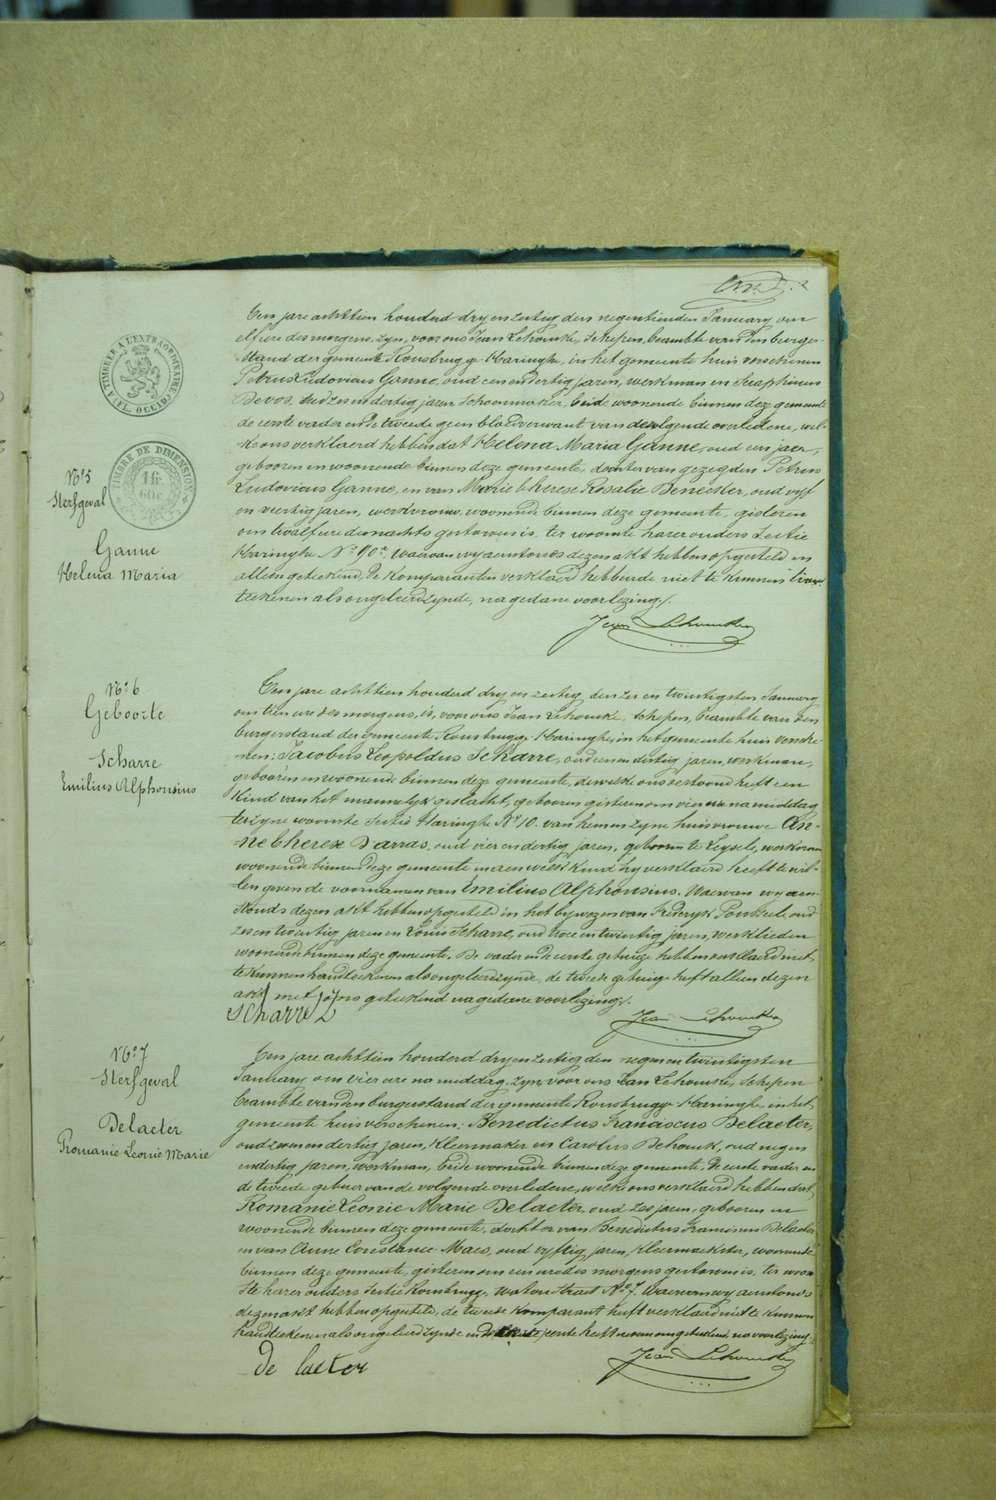 TIMBRE A L'EXTRAORDINAIRE
FL. OCCID.
TIMBRE DE DIMENSION
1 fr.
60c.
N° 5
Sterfgeval
Ganne
Helena Maria
Een jare achttien honderd dry en zestig den negentienden January, om
elf ure des morgens, zyn, voor ons Jean Lehoucke, Schepen, beambte van den burger-
stand der gemeente Rousbrugge Haringhe, in het gemeente huis verschenen
Petrus Ludovicus Ganne, oud een en dertig jaren, werkman en Seraphinus
Devos, oud zes en dertig jaren Schoenmaker, beide woonende binnen deze gemeente
de eerste vader en de tweede geen bloedverwant van de volgende overledene, wel-
ke ons verklaerd hebben dat Helena Maria Ganne, oud een jaer,
gebooren en woonende binnen deze gemeente, dochter van gezegden Petrus
Ludovicus Ganne, en van Marie Therese Rosalie Benecker, oud vyf
en veertig jaren, werkvrouw, woonende binnen deze gemeente, gisteren
om twalf ure des nachts gestorven is, ter woonste harer ouders Sectie
Haringhe N° 90. Waervan wy aenstonds dezen akt hebben opgesteld en
alleen geteekend, De komparanten verklaerd hebbende niet te kunnen
teekenen als ongeleerd zynde, na gedane voorlezing.
Jean Lehoucke
N° 6
Geboorte
Scharre
Emilius Alphonsius
Een jare achttien honderd dry en zestig, den zes en twintigsten January,
om tien ure des morgens, is, voor ons Jean Lehoucke, Schepen, beambte van den
burgerstand der Gemeente Rousbrugge Haringhe, in het gemeente huis versche-
nen: Jacobus Leopoldus Scharre, oud een en dertig jaren, werkman,
gebooren en woonende binnen deze gemeente, dewelke ons vertoond heeft een
kind van het mannelyk geslacht, gebooren gisteren om vier ure na middag
ter zyne woonste Sectie Haringhe N° 10. van hem en zyne huisvrouwe An-
ne Therese Darras, oud vier en dertig jaren, geboren te Leysele, werkvrouw
woonende binnen deze gemeente en aen welk kind hy verklaerd heeft te wil-
len geven de voornamen van Emilius Alphonsius. Waervan wy aen-
stonds dezen akt hebben opgesteld in het bywezen van Frederyk Ponseele, oud
zes en twintig jaren en Louis Scharre, oud twee en twintig jaren, werklieden
woonende binnen deze gemeente. De vader en de eerste getuige hebben verklaerd niet
te kunnen handteekenen als ongeleerd zynde, de tweede getuige heeft alleen dezen
akt met ons geteekend na gedane voorlezing.
Scharre L
Jean Lehoucke
N° 7
Sterfgeval
Delaeter
Romanie Leonie Marie
Een jare achttien honderd dry en zestig den negen en twintigsten
January om vier ure na middag, zyn, voor ons Jean Lehoucke, Schepen
beambte van den burgerstand der gemeente Rousbrugge Haringhe, in het
gemeente huis verschenen: Benedictus Franciscus Delaeter,
oud zeven en dertig jaren, kleermaker en Carolus Dehouck, oud negen
en dertig jaren, werkman, beide woonende binnen deze gemeente. De eerste vader en
de tweede gebuer van de volgende overledene, welke ons verklaerd hebben dat
Romanie Leonie Marie Delaeter, oud zes jaren, gebooren en
woonende binnen deze gemeente, dochter van Benedictus Franciscus Delaeter
en van Anne Constance Maes, oud vyftig jaren, kleermaekster, woonende
binnen deze gemeente, gisteren om een ure des morgens gestorven is, ter woon-
ste harer ouders Sectie Rousbrugge, Watou Straat N° 7. Waervan wy aenstonds
dezen akt hebben opgesteld, de tweede komparant heeft verklaerd niet te kunnen
handteekenen als ongeleerd zynde en de eerste heeft nevens ons geteekend, na voorlezing.
De laeter
Jean Lehoucke